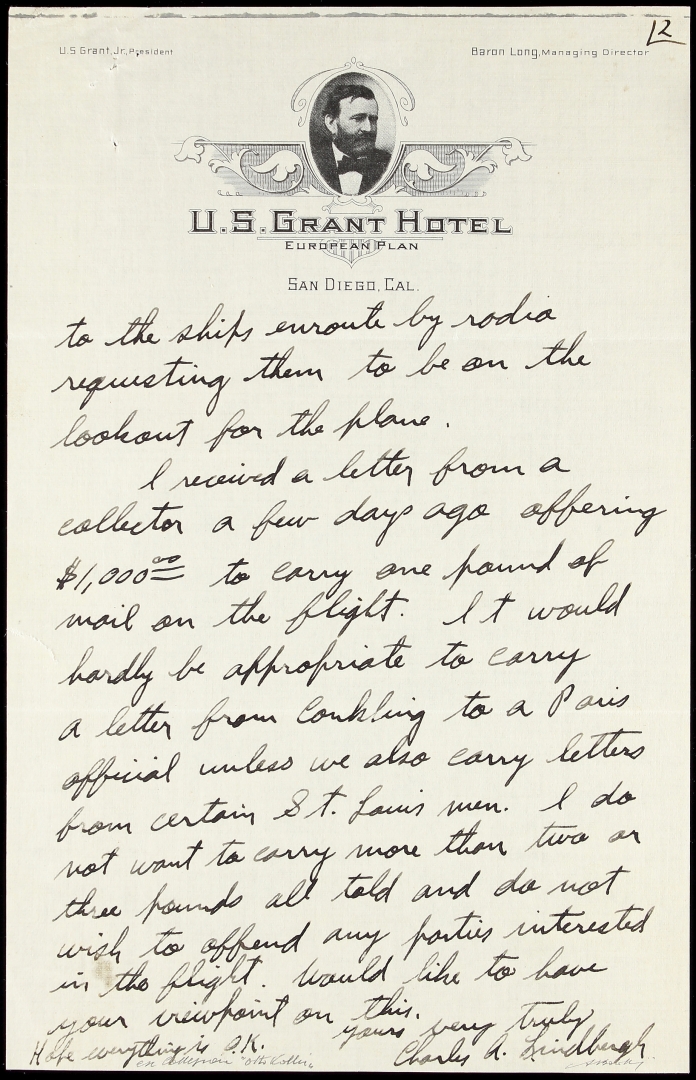 12
U.S. Grant, Jr., President Baron Long, Managing Director
U.S. GRANT HOTEL
EUROPEAN PLAN
SAN DIEGO, CAL.
to the ships enroute by radio
requesting them to be on the
lookout for the plane.
I received a letter from a
collector a few days ago offering
$1,000.00 to carry one pound of
mail on the flight. It would
hardly be appropriate to carry
a letter from Conkling to a Paris
official unless we also carry letters
from certain St. Louis men. I do
not want to carry more than two or
three pounds all told and do not
wish to offend any parties interested
in the flight. Would like to have
your viewpoint on this.
yours very truly
Hope everything is O.K. Charles A. Lindbergh